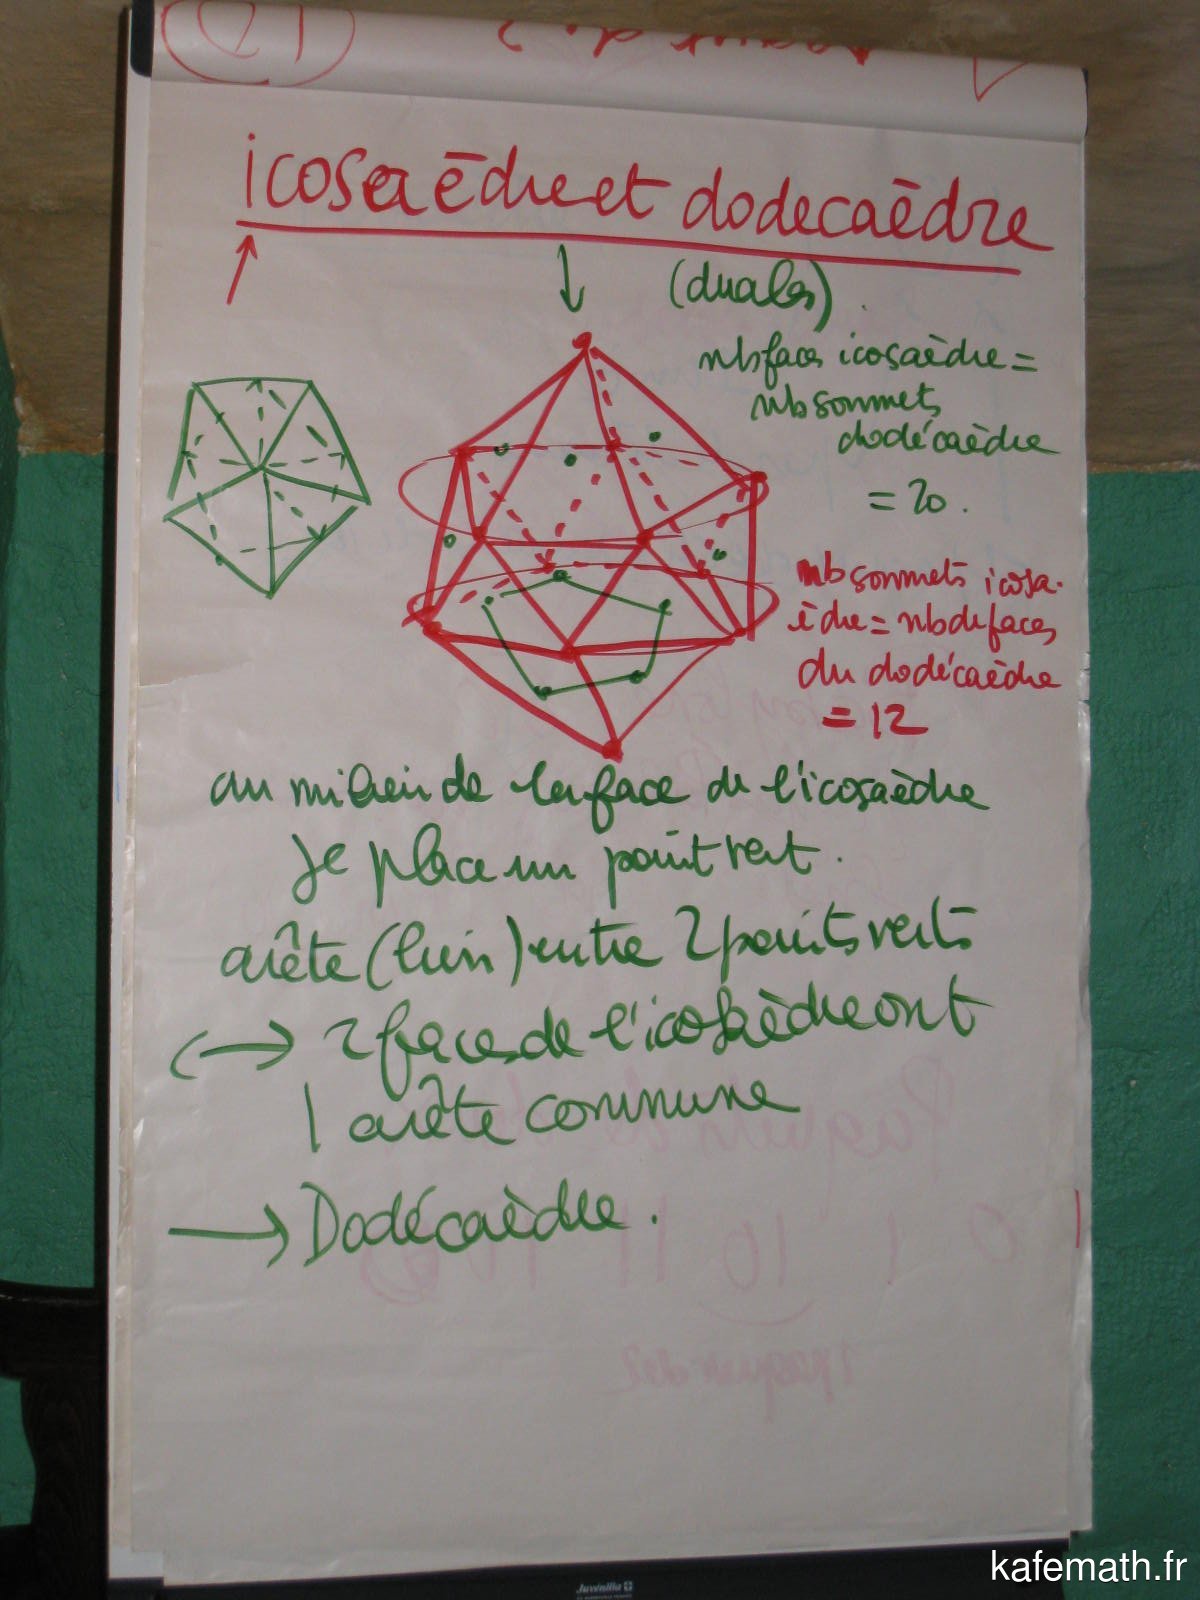 icosaèdre et dodecaèdre
(duales).
nb faces icosaèdre =
nb sommets
dodécaèdre
= 20.
nb sommets icosa-
èdre = nb de faces
du dodécaèdre
= 12
au milieu de la face de l'icosaèdre
Je place un point vert.
arête (lien) entre 2 points verts
2 faces de l'icosaèdre ont
1 arête commune
Dodécaèdre.
Juvenilia
kafemath.fr